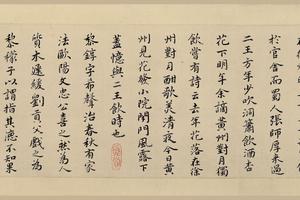 於官舍而蜀人張師厚來過
二王方年少吹洞簫飲酒杏
花下明年余謫黃州對月獨
飲嘗有詩云去年花落在徐
州對月酣歌美清夜今日黃
州見花發小院閉門風露下
蓋憶與二王飲時也
黎錞字希聲治春秋有家
法歐陽文忠公喜之然為人
質木遲緩劉貢父戲之為
黎檬子以謂指其德不知果